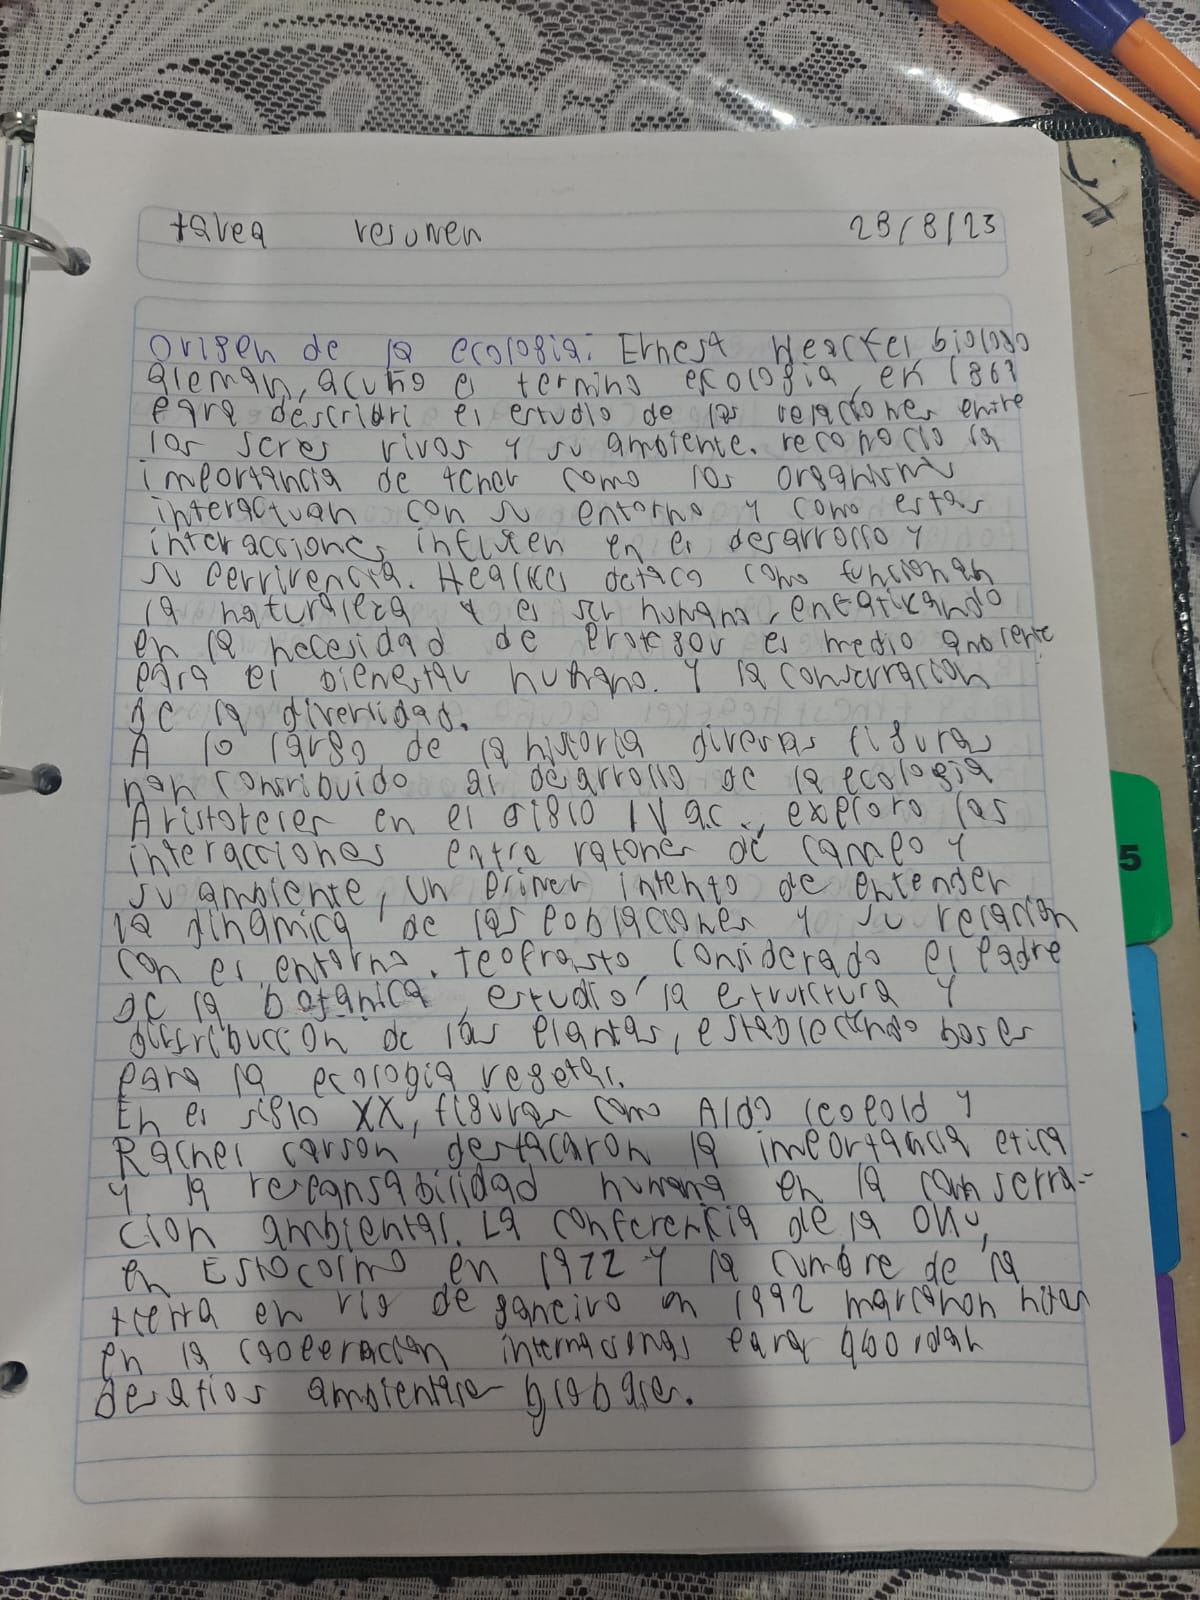 tarea resumen 28/8/23
Origen de la ecologia: Ernest Heackel biologo
aleman, acuño el termino ecologia, en 1869
para describri el estudio de las relaciones entre
los seres vivos y su ambiente. reconocio la
importancia de tener como los organismos
interactuan con su entorno y como estas
interacciones influyen en el desarrollo y
su pervivencia. Heackel detaco como funcionan
la naturaleza y el ser humano, enfatizando
en la necesidad de proteger el medio ambiente
para el bienestar humano. y la conservacion
de la diversidad.
A lo largo de la historia diversas figuras
han contribuido al desarrollo de la ecologia
Aristoteles en el siglo IV a.c., exploro las
interacciones entre ratones de campo y
su ambiente, un primer intento de entender
la dinamica de las poblaciones y su relacion
con el entorno. teofrasto, considerado el padre
de la botanica, estudio la estructura y
distribuccion de las plantas, estableciendo bases
para la ecologia vegetal.
En el siglo XX, figuras como Aldo leopold y
Rachel carson destacaron la importancia etica
y la responsabilidad humana en la conserva-
cion ambiental. La conferencia de la ONU,
en Estocolmo en 1972 y la cumbre de la
tierra en rio de janeiro en 1992 marcanon hitos
en la cooperacion internacional para abordar
desafios ambientales globales.
5